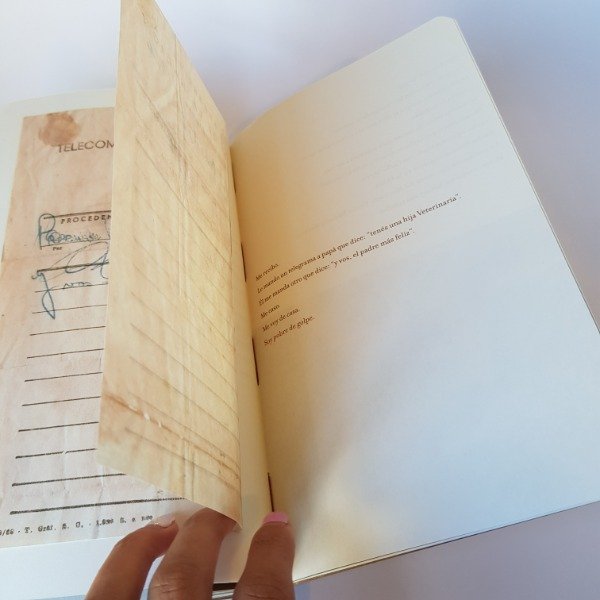 TELECOM
PROCEDEN
Me recibo.
Le mando un telegrama a papá que dice: "tenés una hija Veterinaria".
Él me manda otro que dice: "y vos, el padre más feliz".
Me caso.
Me voy de casa.
Soy pobre de golpe.